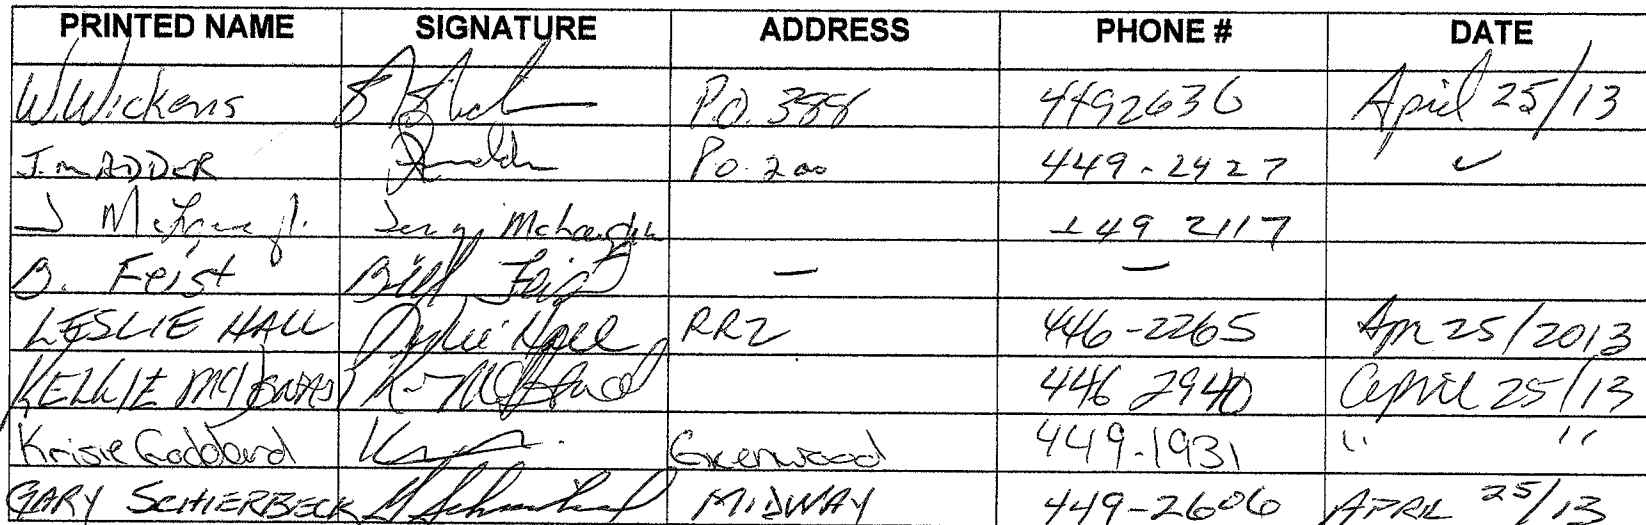 PRINTED NAME SIGNATURE ADDRESS PHONE # DATE
W. Wickens P.O. 388 4492636 April 25/13
J. MADDER P.O. 200 449-2427 ✓
J 449 2117
B. Feist Bill Feist — —
LESLIE HALL Leslie Hall RR2 446-2265 Apr 25/2013
KELLIE 446 2940 April 25/13
Krisie Goddard Greenwood 449-1931 " "
GARY SCHIERBECK MIDWAY 449-2606 APRIL 25/13